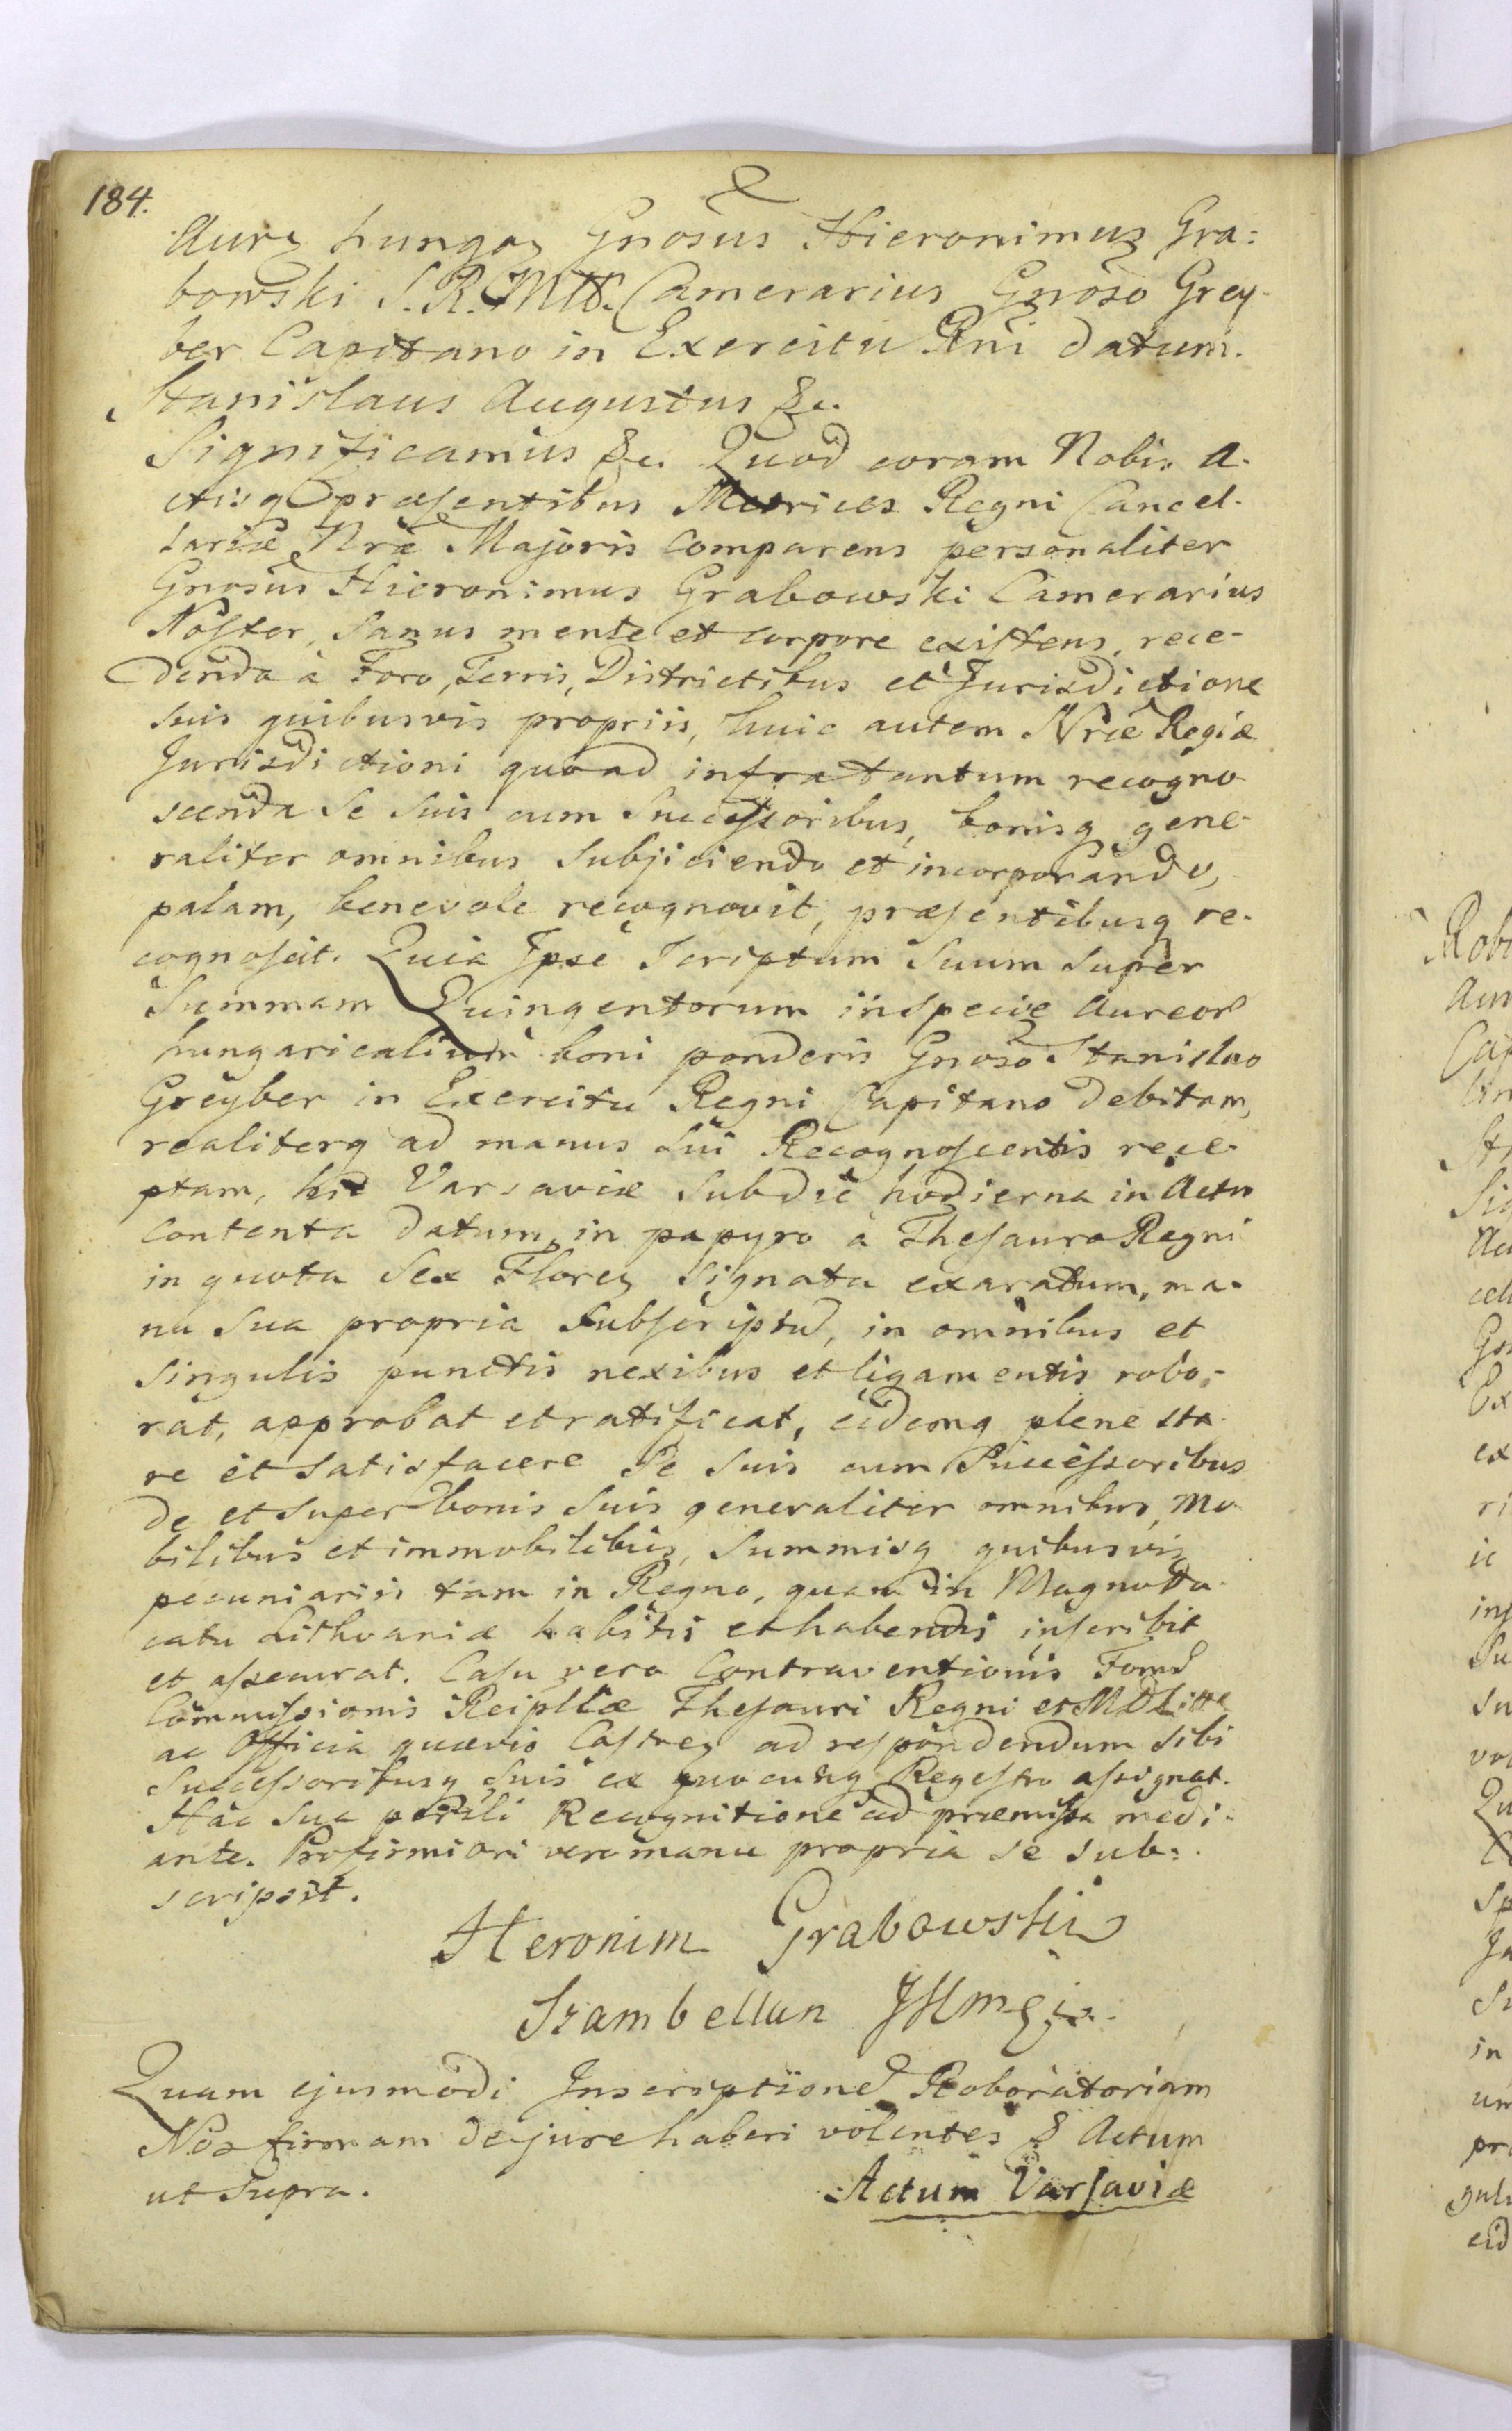 184.
Aurz hungaz Gnosus Hieronimus Gra:
bowski S.R.Mtis. Camerarius Gnoso Grey-
ber Capitano in Exercitu Rni datum.
Stanislaus Augustus &c.
Significamus &c. Quod coram Nobis A-
ctisq præsentibus Metrices Regni Cancel-
lariæ Nræ Majoris comparens personaliter
Gnosus Hieronimus Grabowski Camerarius
Noster, Sanus mente et corpore existens, rece-
dendo à Foro, Terris, Districtibus et Jurisdictione
suis quibusvis propriis, huic autem Nræ Regiæ
Jurisdictioni quoad infra tantum recogno
scenda Se Suis cum Successoribus, bonisq gene-
raliter omnibus Subjiciendo et incorporando,
palam, benevole recognovit, præsentibusq re-
cognoscit. Quia Ipse Scriptum Suum Super
Summam Quingentorum inspecie Aureor
hungaricalium boni ponderis Gnoso Stanislao
Greyber in Exercitu Regni Capitano debitam,
realiterq ad manus Sui Recognoscentis rece-
ptam, hic Varsaviæ Subdie hodierna in Actu
contenta datum, in papyro à Thesauro Regni
in quota Sex Florez Signata exaratum, ma-
nu Sua propria Subscriptu, in omnibus et
Singulis punctis nexibus et ligamentis robo-
rat, approbat et ratificat, eidemq plene sta-
re et satisfacere Se Suis cum Successoribus
de et super bonis Suis generaliter omnibus, Mo
bilibus et immobilibus, Summisq quibusvis
pecuniariis tam in Regno, quam in Magno Du-
catu Lithvaniæ habitis et habendis inscribit
et assecurat. Casu vero Contraventionis Forū
Commissionis Reiplicæ Thesauri Regni et MDLitte
ac Officia quævis Castrez ad respondendum Sibi
Successoribusq Suis ex quocunq Regestro assignat.
Hac Sua psli Recognitione ad præmissa medi-
ante. Pro firmiori vero manu propria se sub:
scripsit.
Heronim Grabowski
Szambellan JKMCi.
Quam ejusmodi Inscriptione Roboratoriam
Nos firmam de jure haberi volentes & Actum
ut Supra.
Actum Varsaviæ